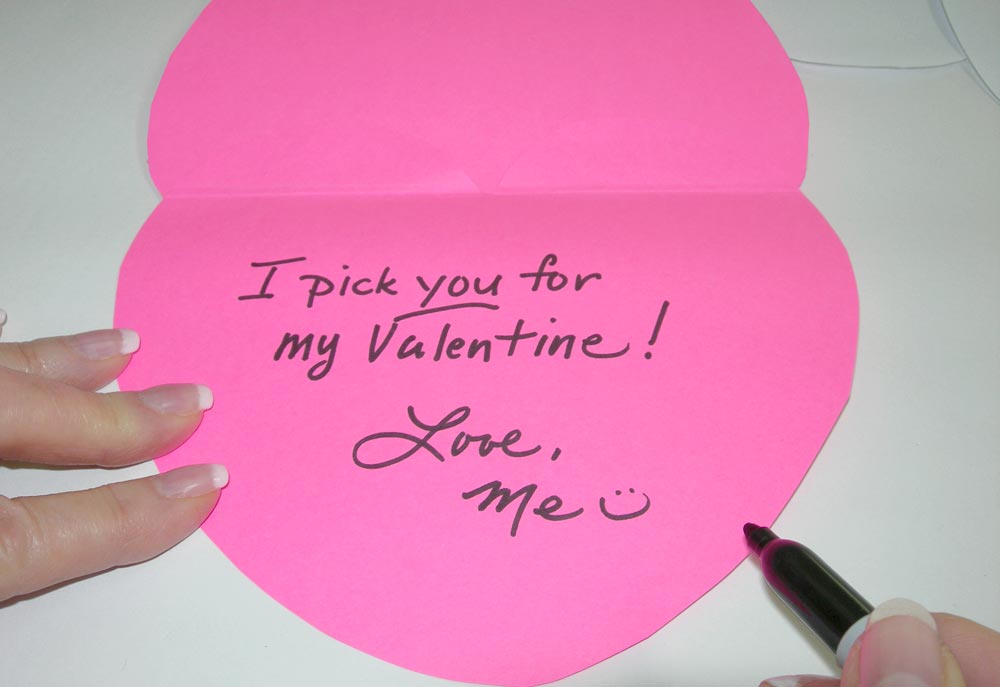 I pick you for
my Valentine!
Love,
Me :)